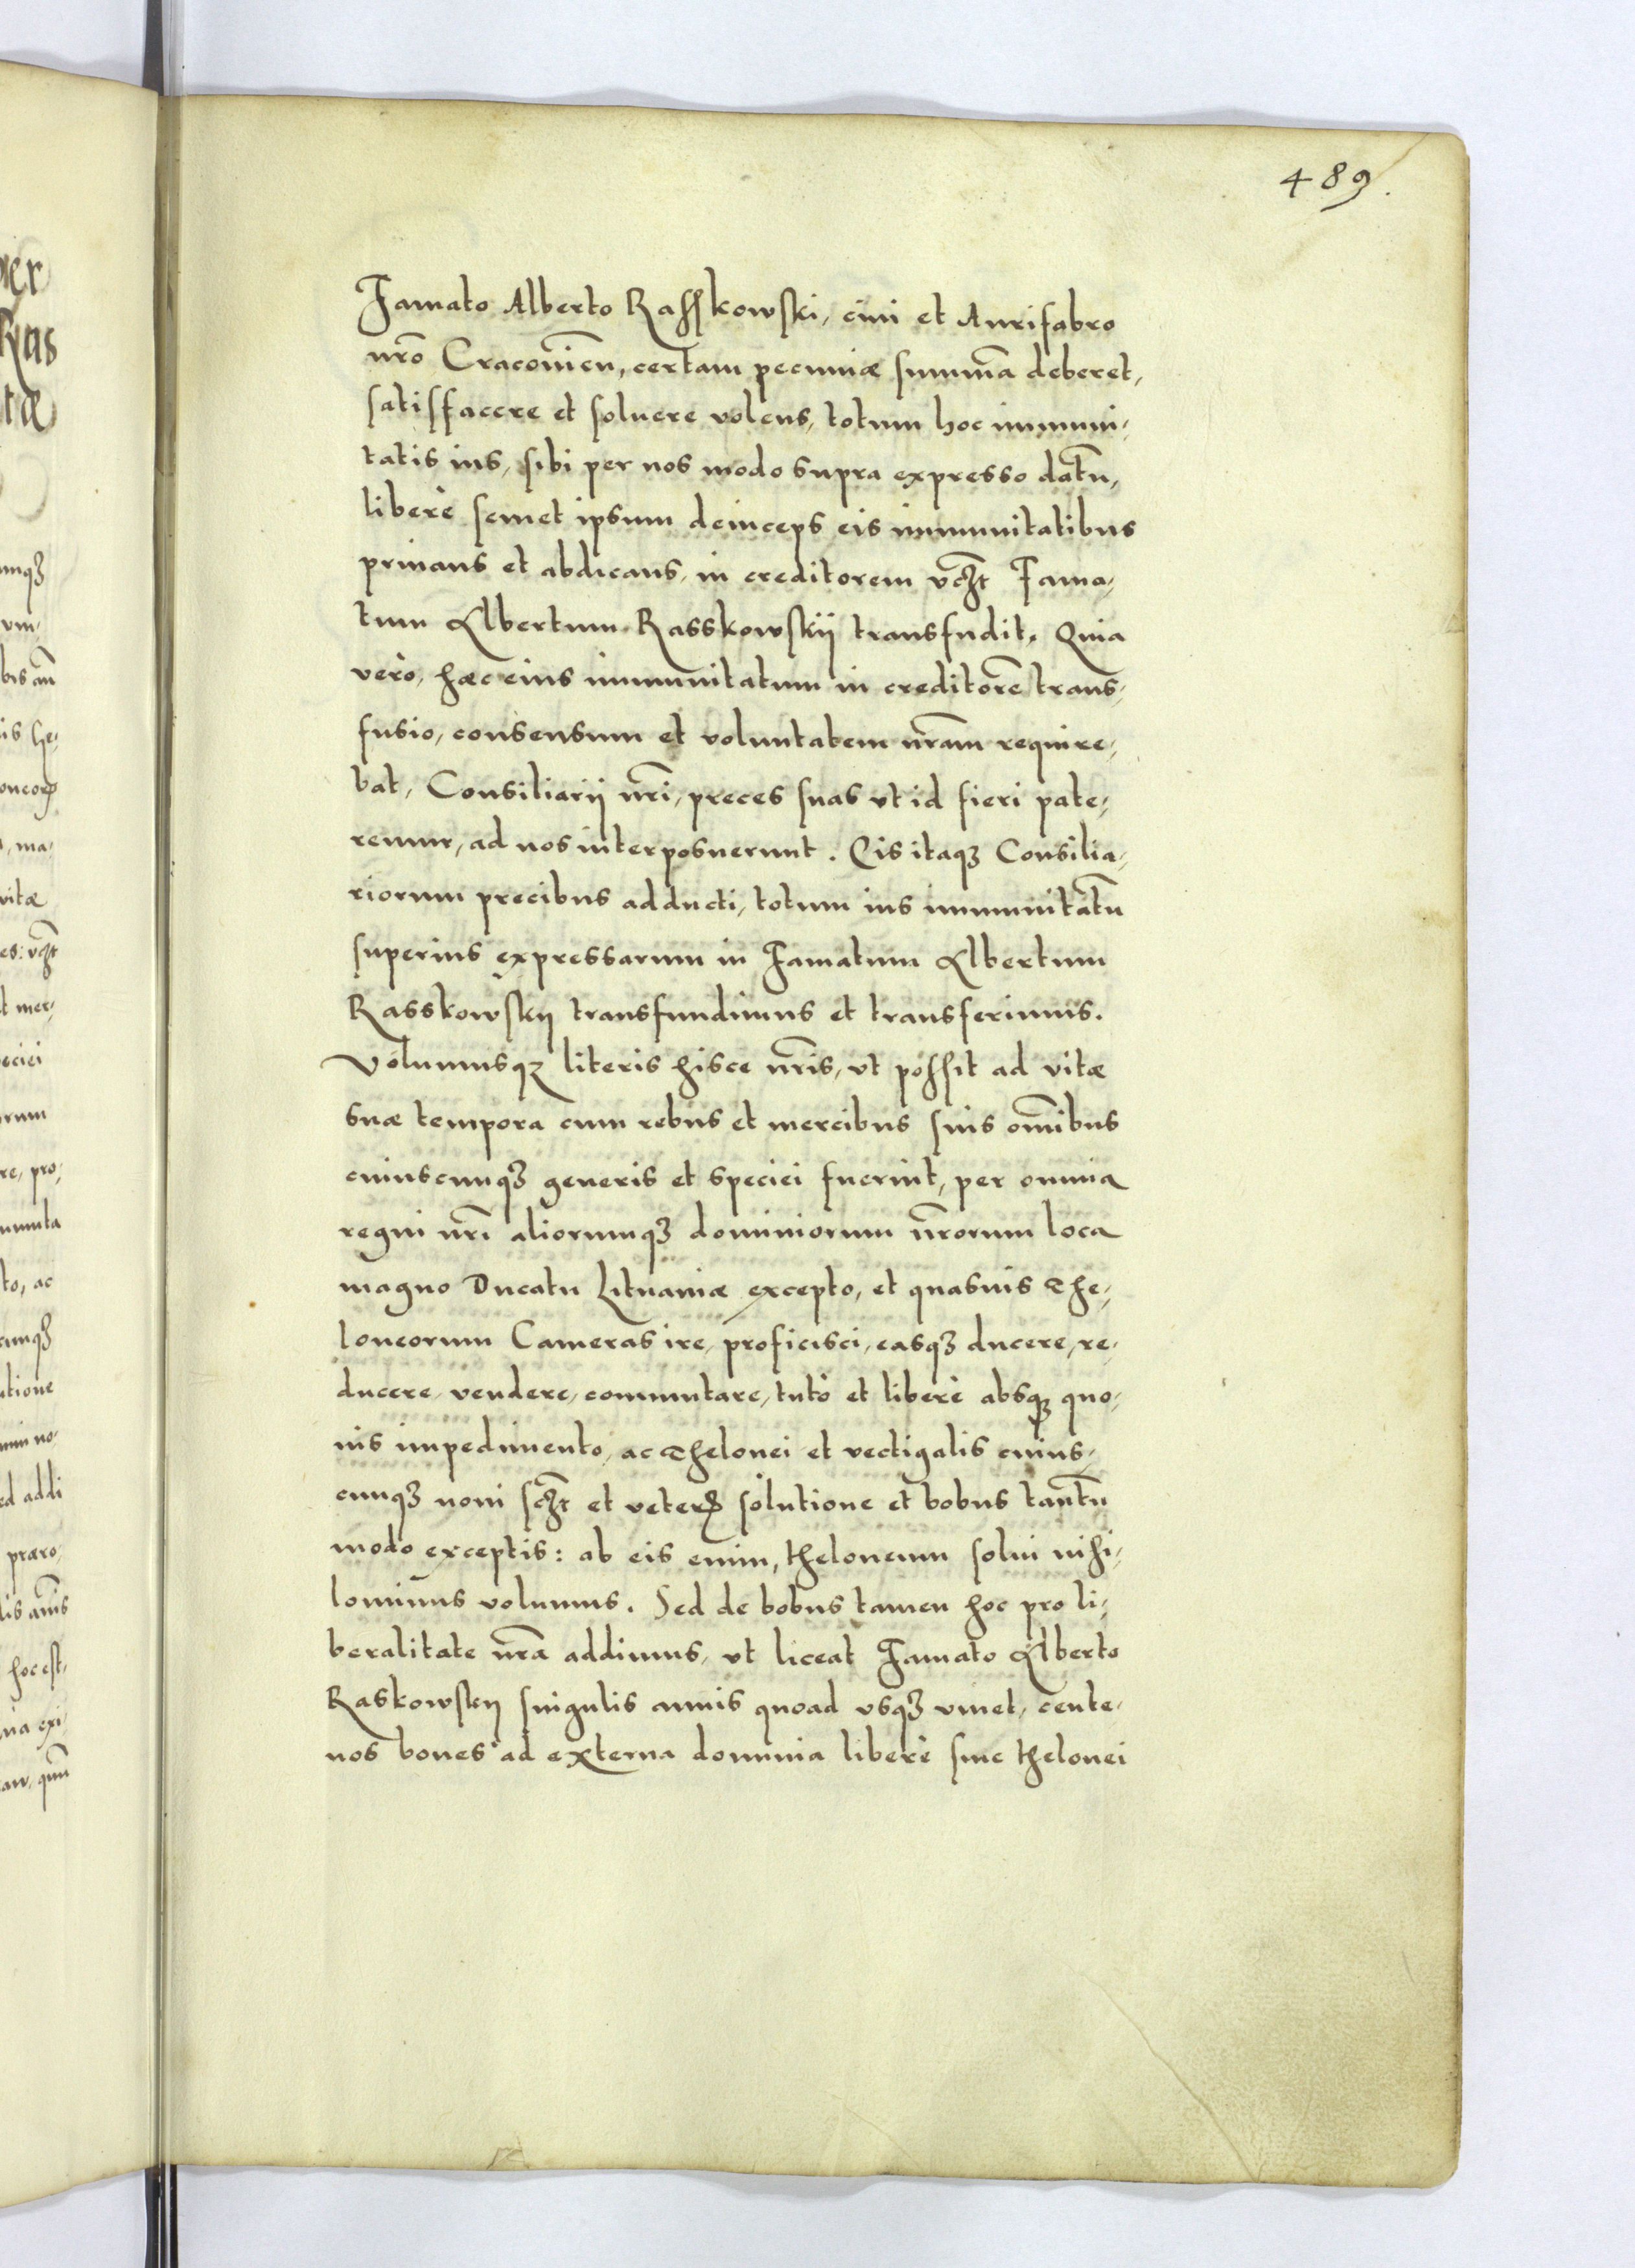 489.
Famato Alberto Rasskowski, ciui et Aurifabro
nr̃o Cracouien̄, certam pecuniæ sum̄ā deberet,
satisfacere et soluere volens, totum hoc immuni,
tatis ius, sibi per nos modo supra expresso datū,
liberè semet ipsum deinceps eis immunitatibus
priuans et abdicans, in creditorem vcꝫt Fama,
tum Albertum Rasskowskij transfudit. Quia
verò, hæc eius immunitatum in creditorē trans,
fusio, consensum et voluntatem nr̃am require,
bat, Consiliarij nr̃i, preces suas vt id fieri pate,
remur, ad nos interposuerunt. Eis itaqꝫ Consilia,
riorum precibus adducti, totum ius immunitatū
superius expressarum in Famatum Albertum
Rasskowskij transfundimus et transferimus.
Volumusqꝫ literis hisce nr̃is, vt possit ad vitæ
suæ tempora cum rebus et mercibus suis om̄ibus
cuiuscunqꝫ generis et speciei fuerint, per omnia
regni nr̃i aliorumqꝫ dominiorum nr̃orum loca
magno Ducatu Lituaniæ excepto, et quasuis The,
loneorum Cameras ire, proficisci, easqꝫ ducere, re,
ducere, vendere, commutare, tutò et liberè absqꝫ quo,
uis impedimento, ac Thelonei et vectigalis cuius,
cunqꝫ noui scꝫt et veterꝭ solutione et bobus tantū
modo exceptis: ab eis enim, theloneum solui nihi,
lominus volumus. Sed de bobus tamen hoc pro li,
beralitate nr̃a addimus, vt liceat Famato Alberto
Raskowskij singulis annis quoad vsqꝫ viuet, cente,
nos boues ad externa dominia liberè sine thelonei